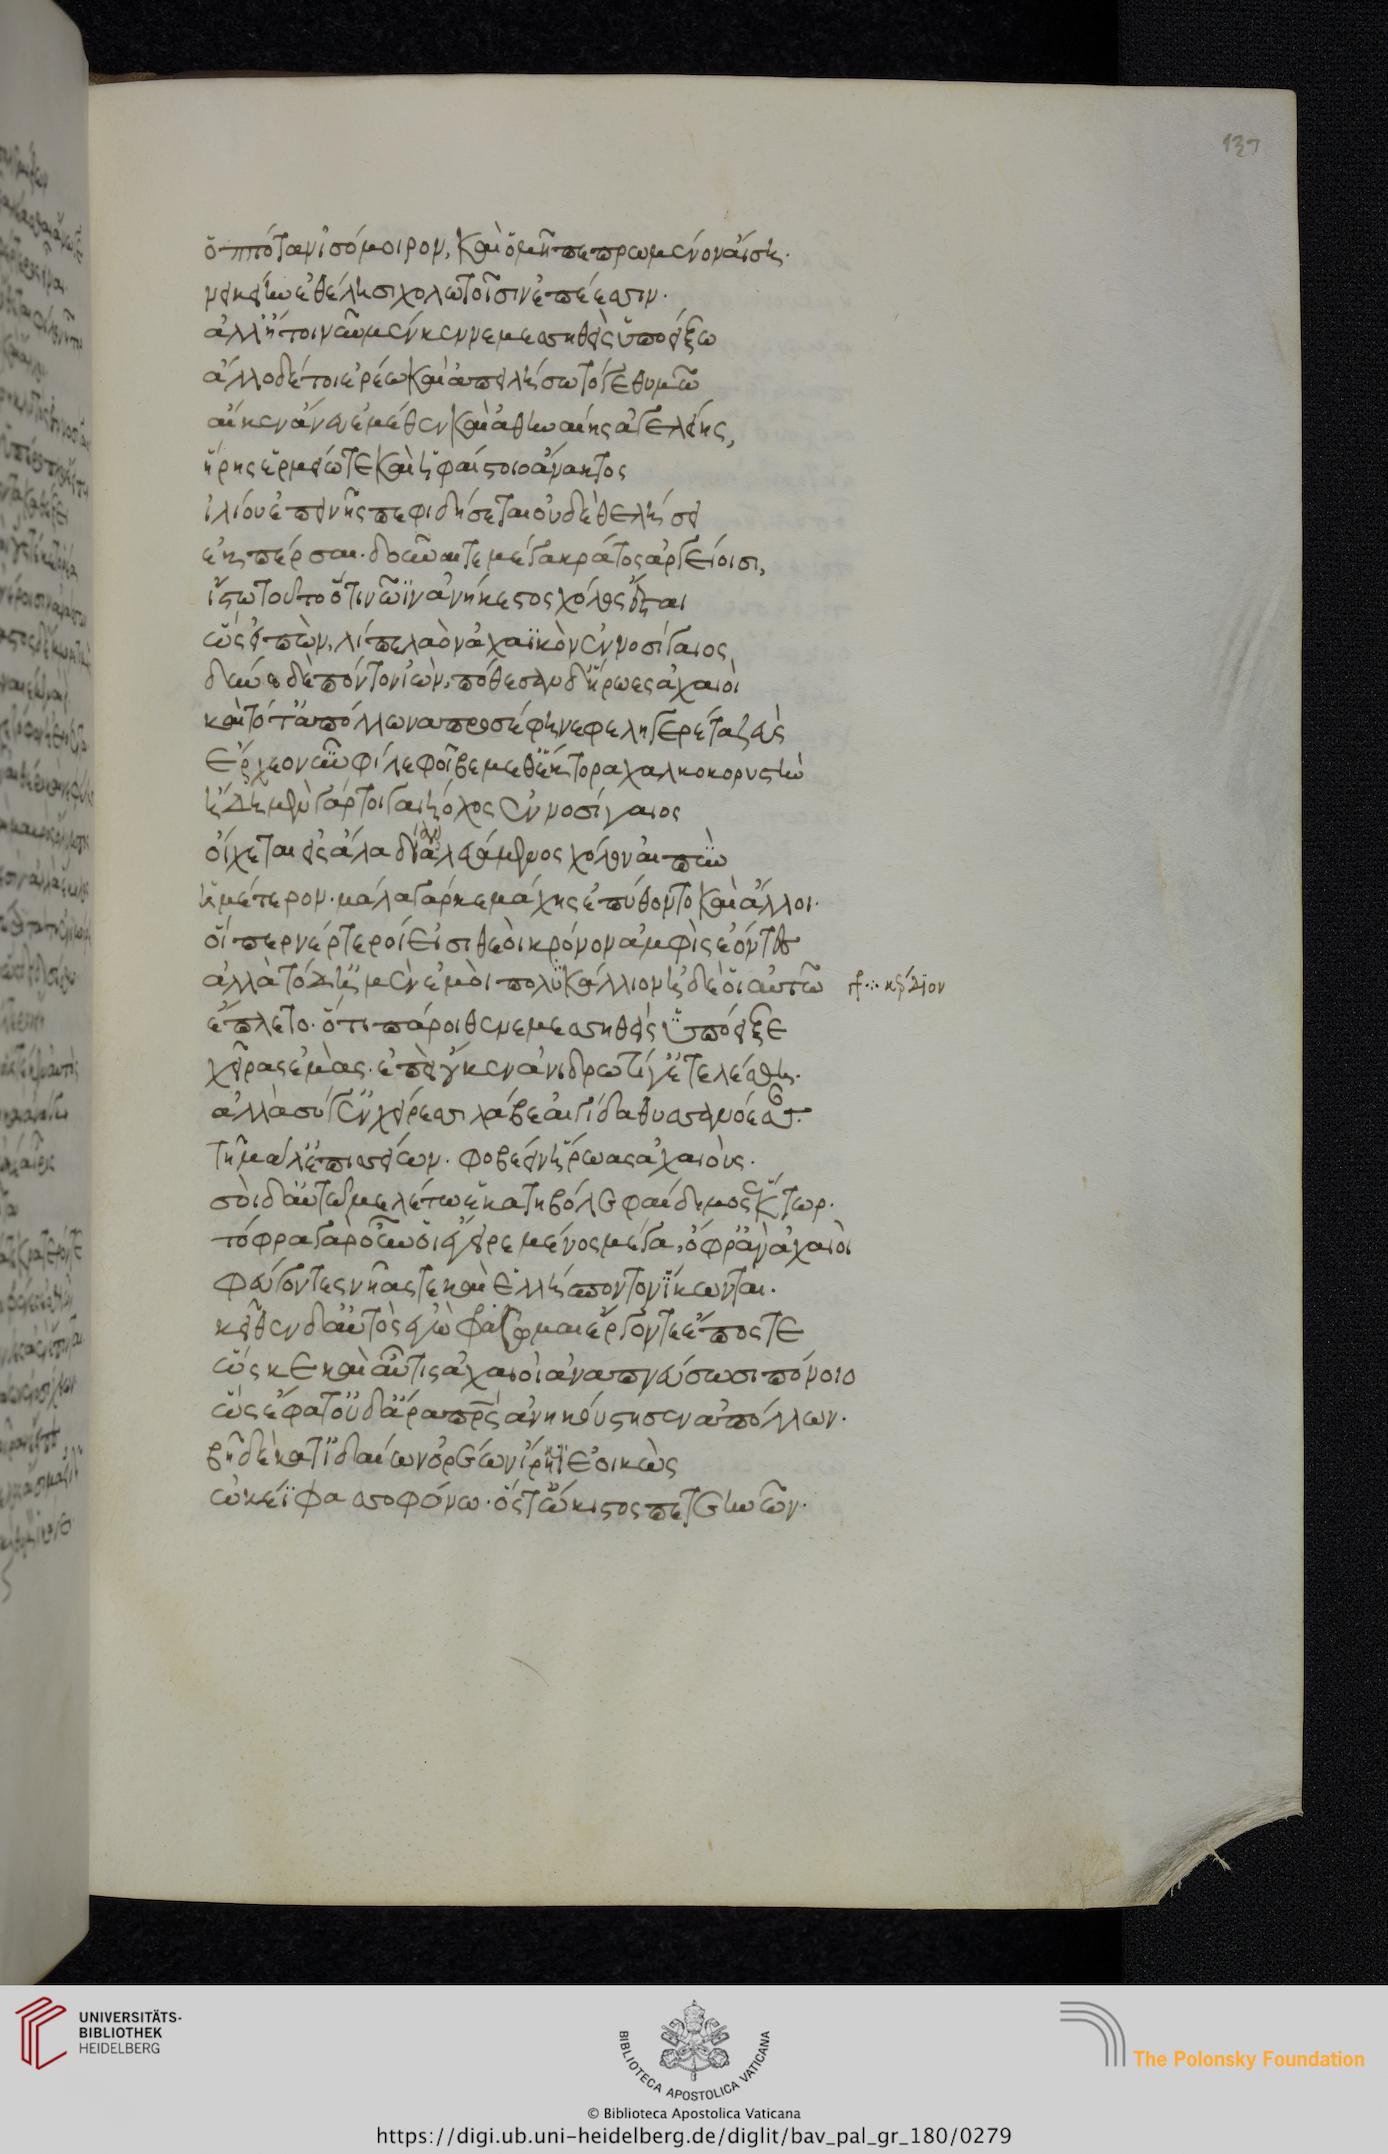 137
ὁππότἂν ἰσόμοιρον, καὶ ὁμῇ πεπρωμένον αἴσῃ.
νεικείειν ἐθέλῃσι χολωτοῖσιν ἐπέεσσιν.
ἀλλ' ἤτοι νῦν μέν κε νεμεσσηθεὶς ὑποείξω
ἄλλο δέ τοι ἐρέω καὶ ἀπειλήσω τόγε θυμῶ
αἴ κεν ἄνευ ἐμέθεν καὶ ἀθηναίης ἀγελείης,
ἥρης ἑρμείω τε καὶ ἡφαίστοιο ἄνακτος
ἰλίου ἐπεινῆς πεφιδήσεται οὐδ' ἐθελήσει
ἐκπέρσαι. δοῦναι τε μέγα κράτος ἀργείοισι,
ἴστω τοῦθ' ὅτι νῶϊν ἀνήκεστος χόλος ἔσται
ὣς εἰπὼν, λίπε λαὸν ἀχαϊκὸν ἐννοσίγαιος,
δῦνε δὲ πόντον ἰὼν, πόθεσαν δ' ἥρωες ἀχαιοὶ
καὶ τότ' ἀπόλλωνα προσέφη νεφεληγερέτα ζεὺς
ἔρχεο νῦν φίλε φοῖβε μεθ' ἕκτορα χαλκοκορυστὴν
ἤδη μὲν γάρ τοι γαιήοχος ἐννοσίγαιος
οἴχεται εἰς ἅλα δῖαν ἀλευάμενος χόλον αἰπὺν
ἡμέτερον. μάλα γάρ κε μάχης ἐπύθοντο καὶ ἄλλοι.
οἵπερ νέρτεροί εἰσι θεοὶ κρόνον ἀμφὶς ἐόντες
ἀλλὰ τόδ' ἠμὲν ἐμοὶ πολὺ κάλλιον ἠδὲ οἱ αὐτῶ
γρ. κέρδιον
ἔπλετο. ὅτι πάροιθε νεμεσσηθεὶς ὑπόειξε
χεῖρας ἐμὰς. ἐπεὶ οὔ κεν ἀνιδρωτί γ' ἐτελέσθη.
ἀλλὰ σύ γ' ἐν χείρεσσι λάβε αἰγίδα θυσσανόεσσαν.
τῆ μάλ' ἐπισσείων. φοβέειν ἥρωας ἀχαιοὺς.
σοὶ δ' αὐτῶ μελέτω ἑκατηβόλε φαίδιμος ἕκτωρ.
τόφρα γὰρ οὖν οἱ ἔγειρε μένος μέγα, ὄφρ' ἂν ἀχαιοὶ
φεύγοντες νῆάς τε καὶ ἑλλήσποντον ἵκωνται.
κεῖθεν δ' αὐτὸς ἐγὼ φράσομαι ἔργόν τε ἔπος τε
ὥς κε καὶ αὖτις ἀχαιοὶ ἀναπνεύσωσι πόνοιο
ὣς ἔφατ' οὐδ' ἄρα πρς ἀνηκούστησεν ἀπόλλων.
βῆ δὲ κατ' ἰδαίων ὀρέων ἴρηκι ἐοικὼς
ὠκέϊ φασσοφόνω. ὅς τ' ὤκιστος πετεηνῶν.
UNIVERSITÄTS-
BIBLIOTHEK
HEIDELBERG
BIBLIOTECA APOSTOLICA VATICANA
The Polonsky Foundation
© Biblioteca Apostolica Vaticana
https://digi.ub.uni-heidelberg.de/diglit/bav_pal_gr_180/0279